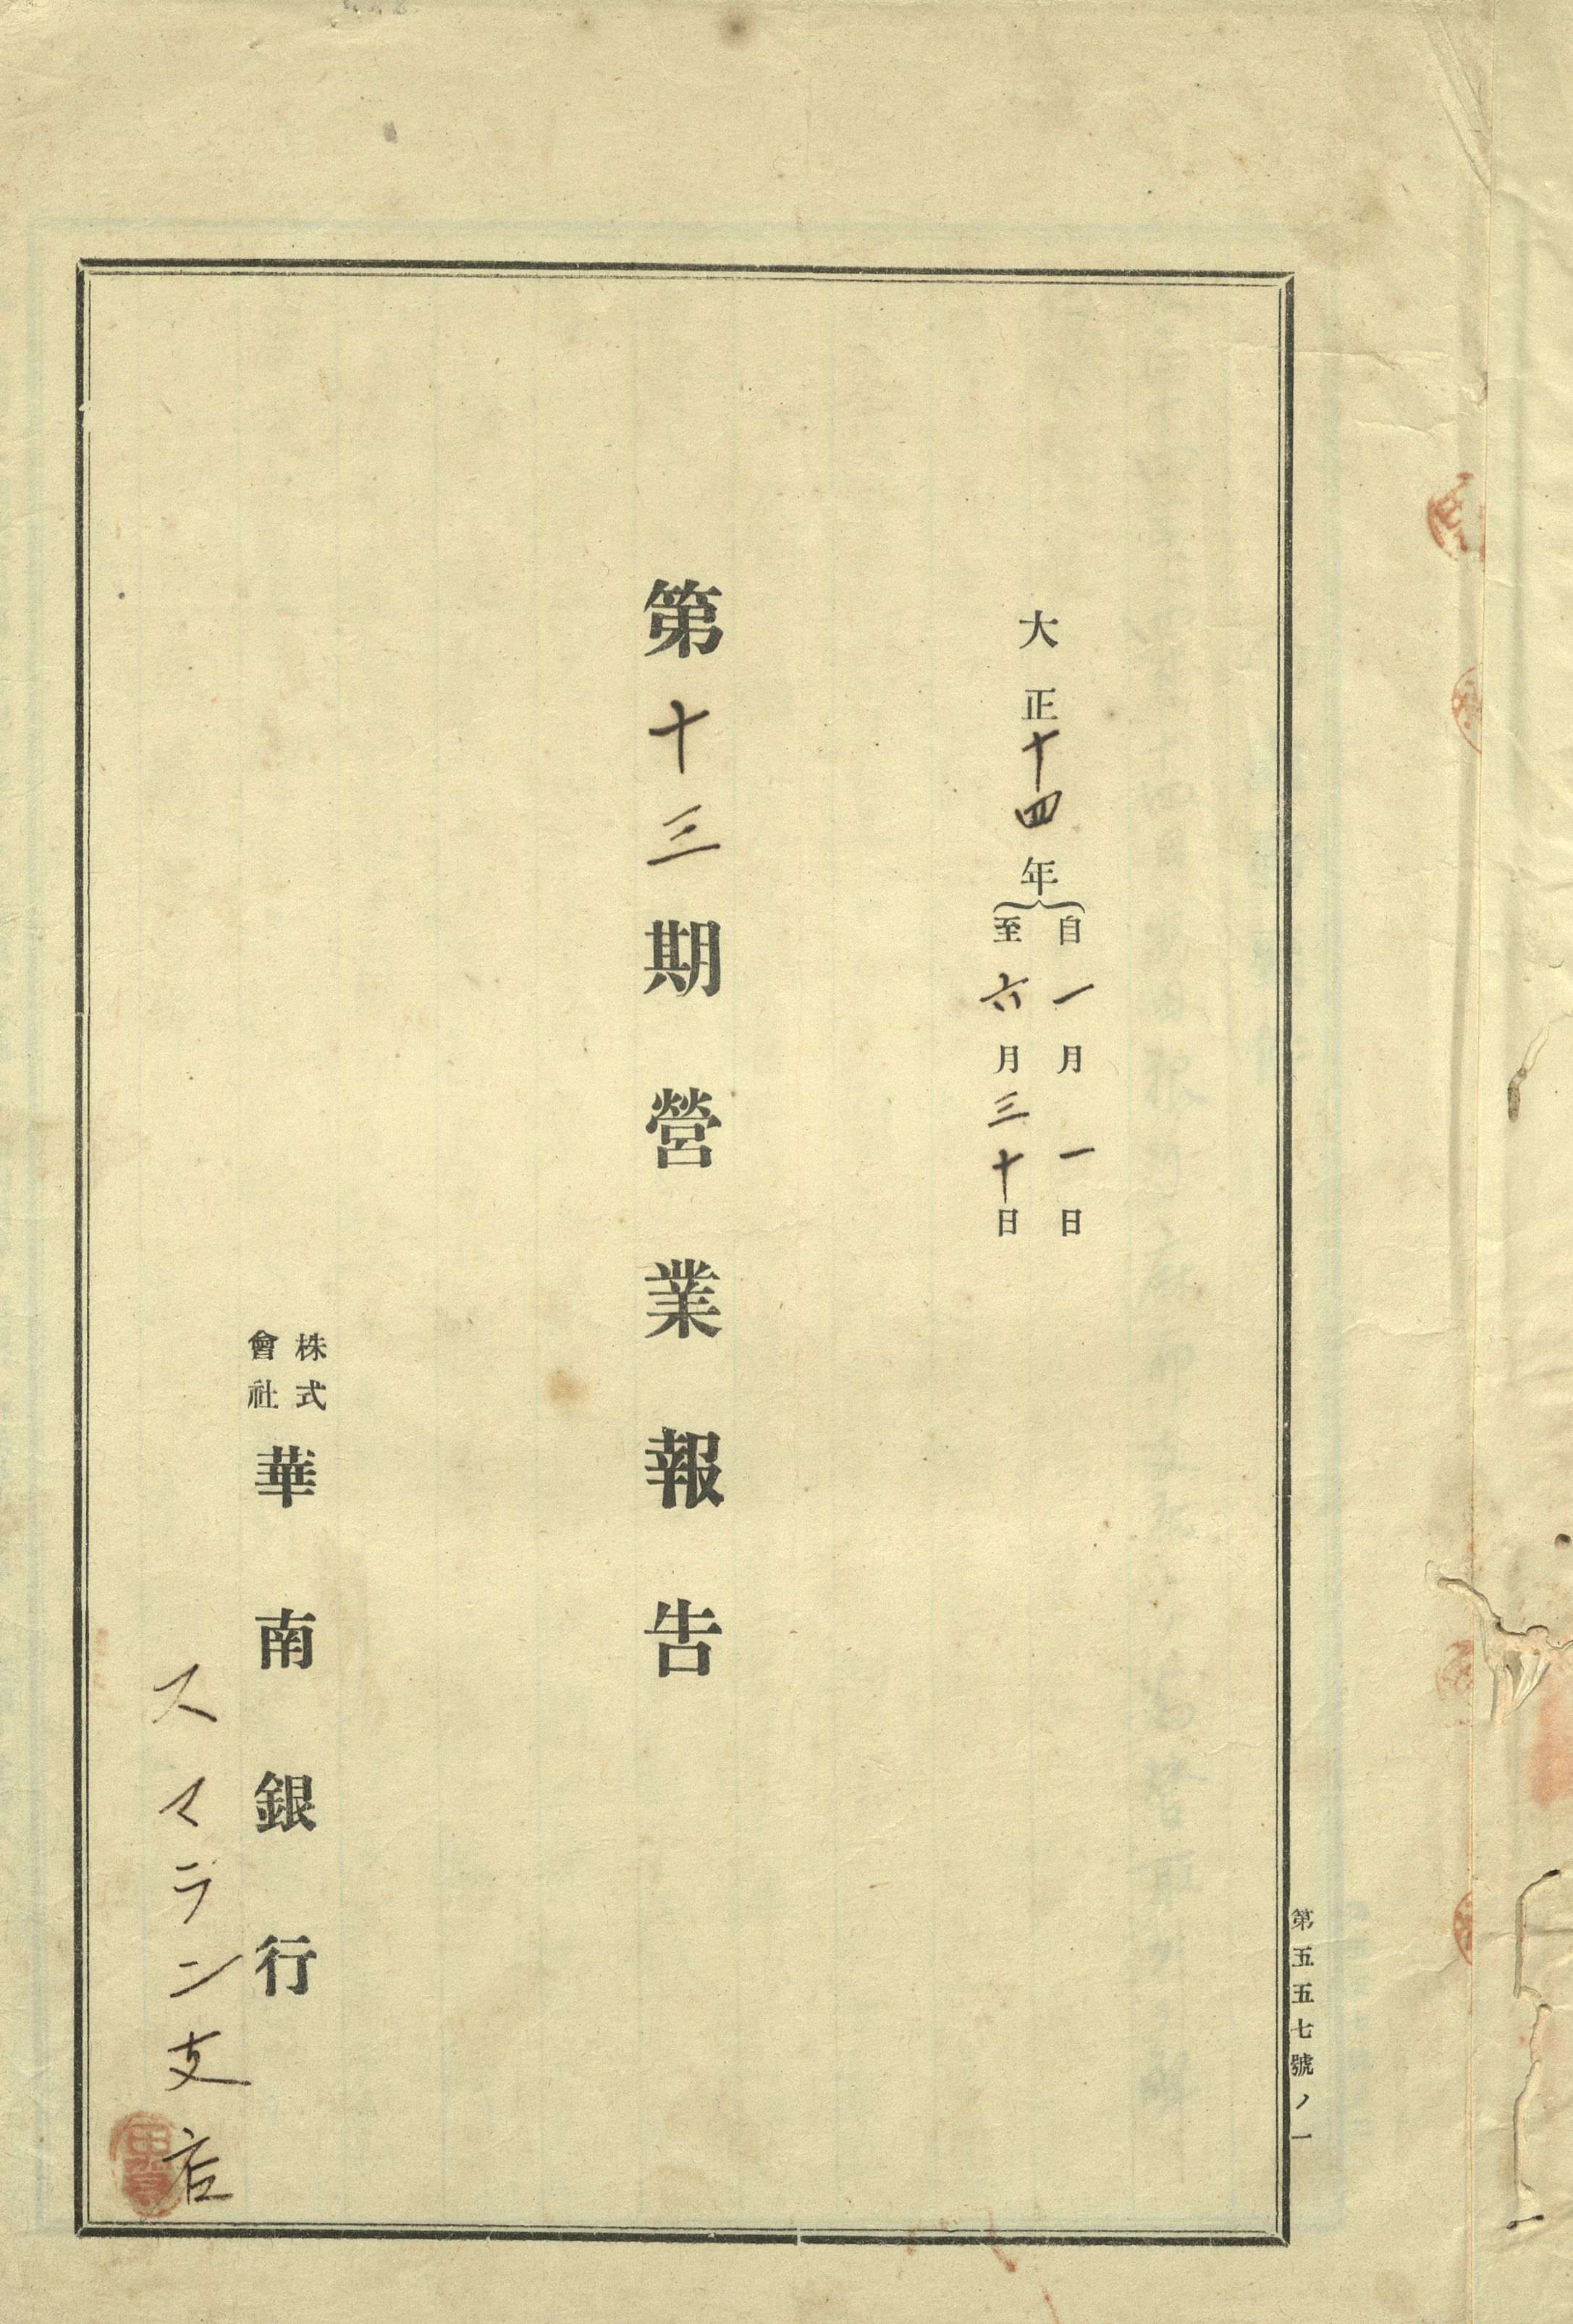 大正十四年
自一月一日
至六月三十日
第十三期營業報告
株式
會社
華南銀行
スマラン支店
第五五七號ノ一